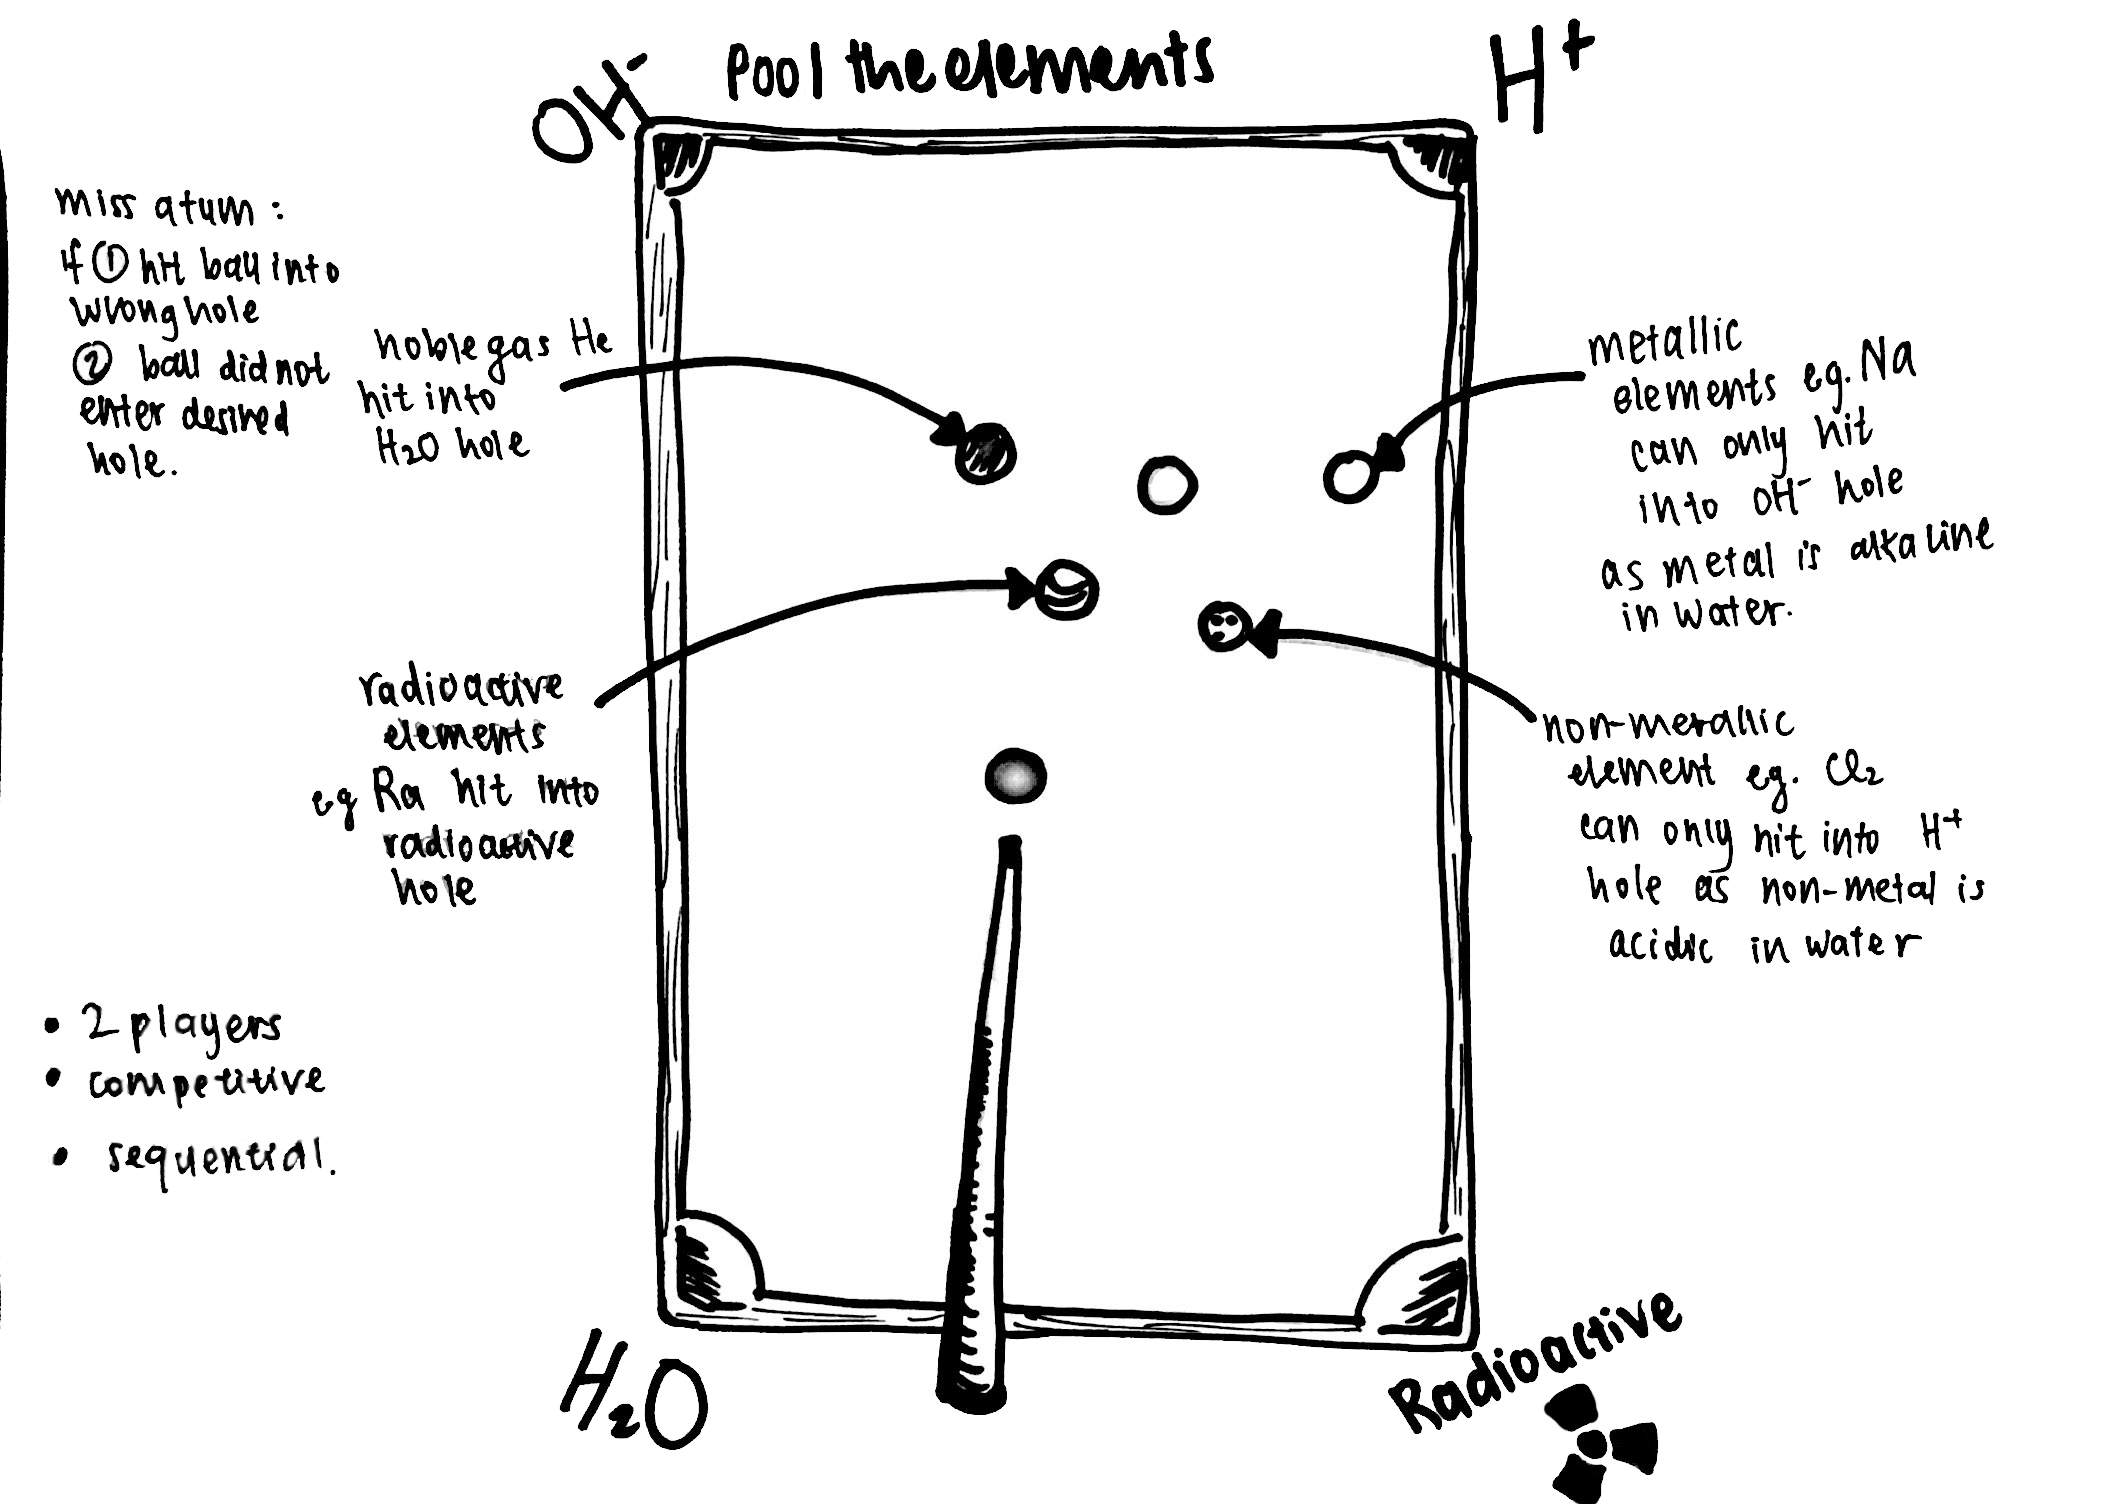 Pool the elements
OH⁻
H⁺
miss atum :
if ① hit ball into
wrong hole
② ball did not
enter desired
hole.
noble gas He
hit into
H₂O hole
metallic
elements eg. Na
can only hit
into OH⁻ hole
as metal is alkaline
in water.
radioactive
elements
eg Ra hit into
radioactive
hole
non-merallic
element eg. Cl₂
can only hit into H⁺
hole as non-metal is
acidic in water
• 2 players
• competitive
• sequential.
H₂O
Radioactive